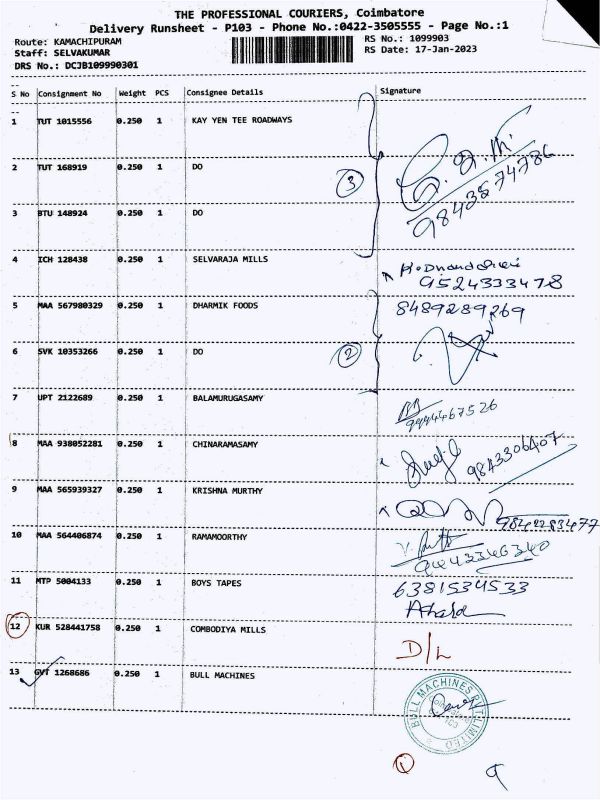 THE PROFESSIONAL COURIERS, Coimbatore
Delivery Runsheet - P103 - Phone No.:0422-3505555 - Page No.:1
Route: KAMACHIPURAM
RS No.: 1099903
Staff: SELVAKUMAR
RS Date: 17-Jan-2023
DRS No.: DCJB109990301
S No Consignment No Weight PCS Consignee Details Signature
1 TUT 1015556 0.250 1 KAY YEN TEE ROADWAYS
2 TUT 168919 0.250 1 DO
3
9843574786
3 BTU 148924 0.250 1 DO
4 ICH 128438 0.250 1 SELVARAJA MILLS
9524333478
5 MAA 567980329 0.250 1 DHARMIK FOODS 8489289269
6 SVK 10353266 0.250 1 DO
2
7 UPT 2122689 0.250 1 BALAMURUGASAMY
9444467526
8 MAA 938052281 0.250 1 CHINARAMASAMY 9843306407
9 MAA 565939327 0.250 1 KRISHNA MURTHY
9842283477
10 MAA 564406874 0.250 1 RAMAMOORTHY
9443346340
11 MTP 5004133 0.250 1 BOYS TAPES 6381534533
12 KUR 528441758 0.250 1 COMBODIYA MILLS
D/L
13 GVT 1268686 0.250 1 BULL MACHINES
BULL MACHINES PVT LIMITED